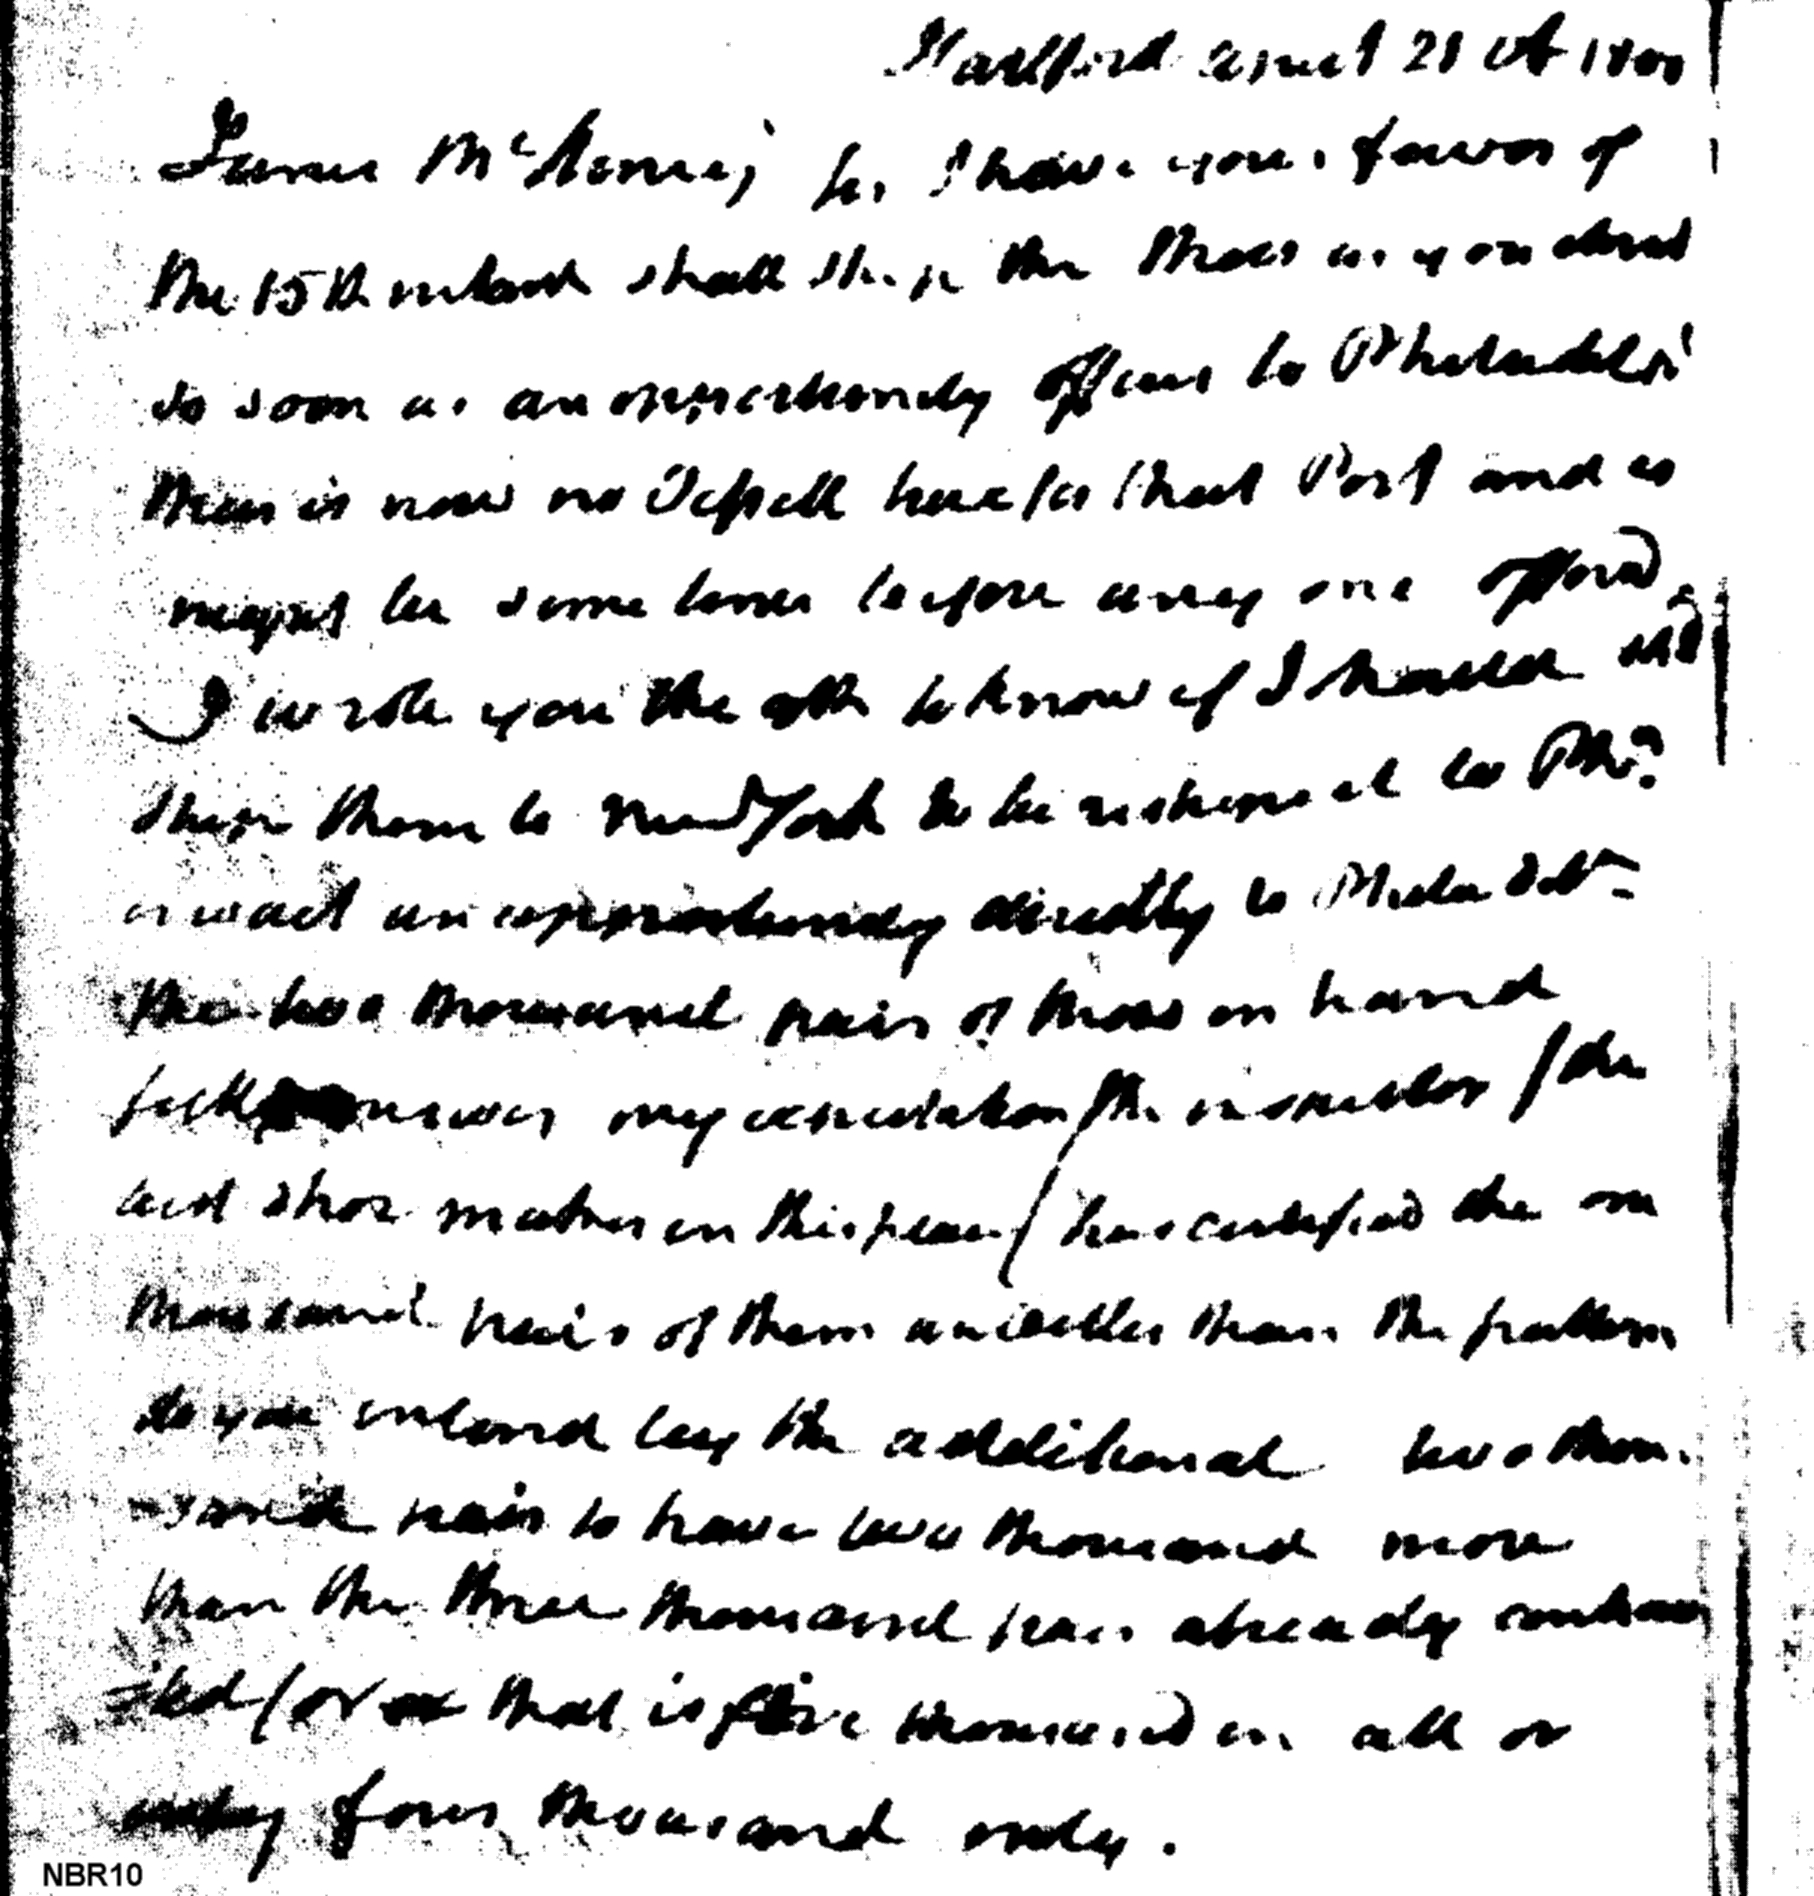 Hartford April 21st 1800
James McHenry Sr, I have your favor of
the 15th instant shall ship the Shoes as you direct
so soon as an opportunity offers to Philadelpa
there is now no Vessell here for that Port and
be some time before any one offers
I wrote you the 9th to know if I should
Ship them to New York to be reshiped to Pha
or wait an opportunity directly to Philadela
the two thousand pair of Shoes on hand
fully answer my expectation / the inspector / the
best shoe maker in this place / has certified the one
thousand pairs of them are better than the pattern
do you intend by the additional two thou-
-sand pair to have two thousand more
than the three thousand pair already contrac
-ted for that is five thousand in all or
four thousand only.
NBR10